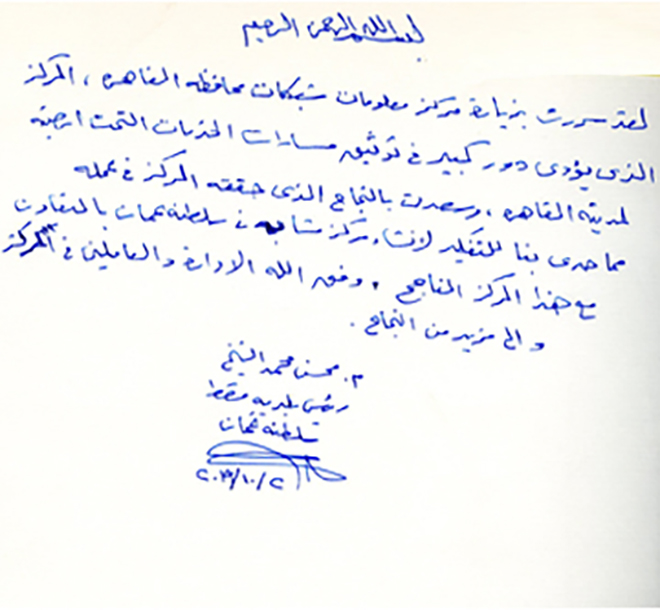 بسم الله الرحمن الرحيم
لقد سررت بزيارة مركز معلومات شبكات محافظة القاهرة ، المركز
الذي يؤدي دور كبير في توثيق مسارات الخدمات التحت ارضية
لمدينة القاهرة ، وسعدت بالنجاح الذي حققه المركز في عمله
مما حدى بنا للتفكير لانشاء مركز مشابه في سلطنة عمان بالتعاون
مع هذا المركز الناجح . وفق الله الادارة والعاملين في المركز
والى مزيد من النجاح .
م. محسن محمد الشيخ
رئيس بلدية مسقط
سلطنة عمان